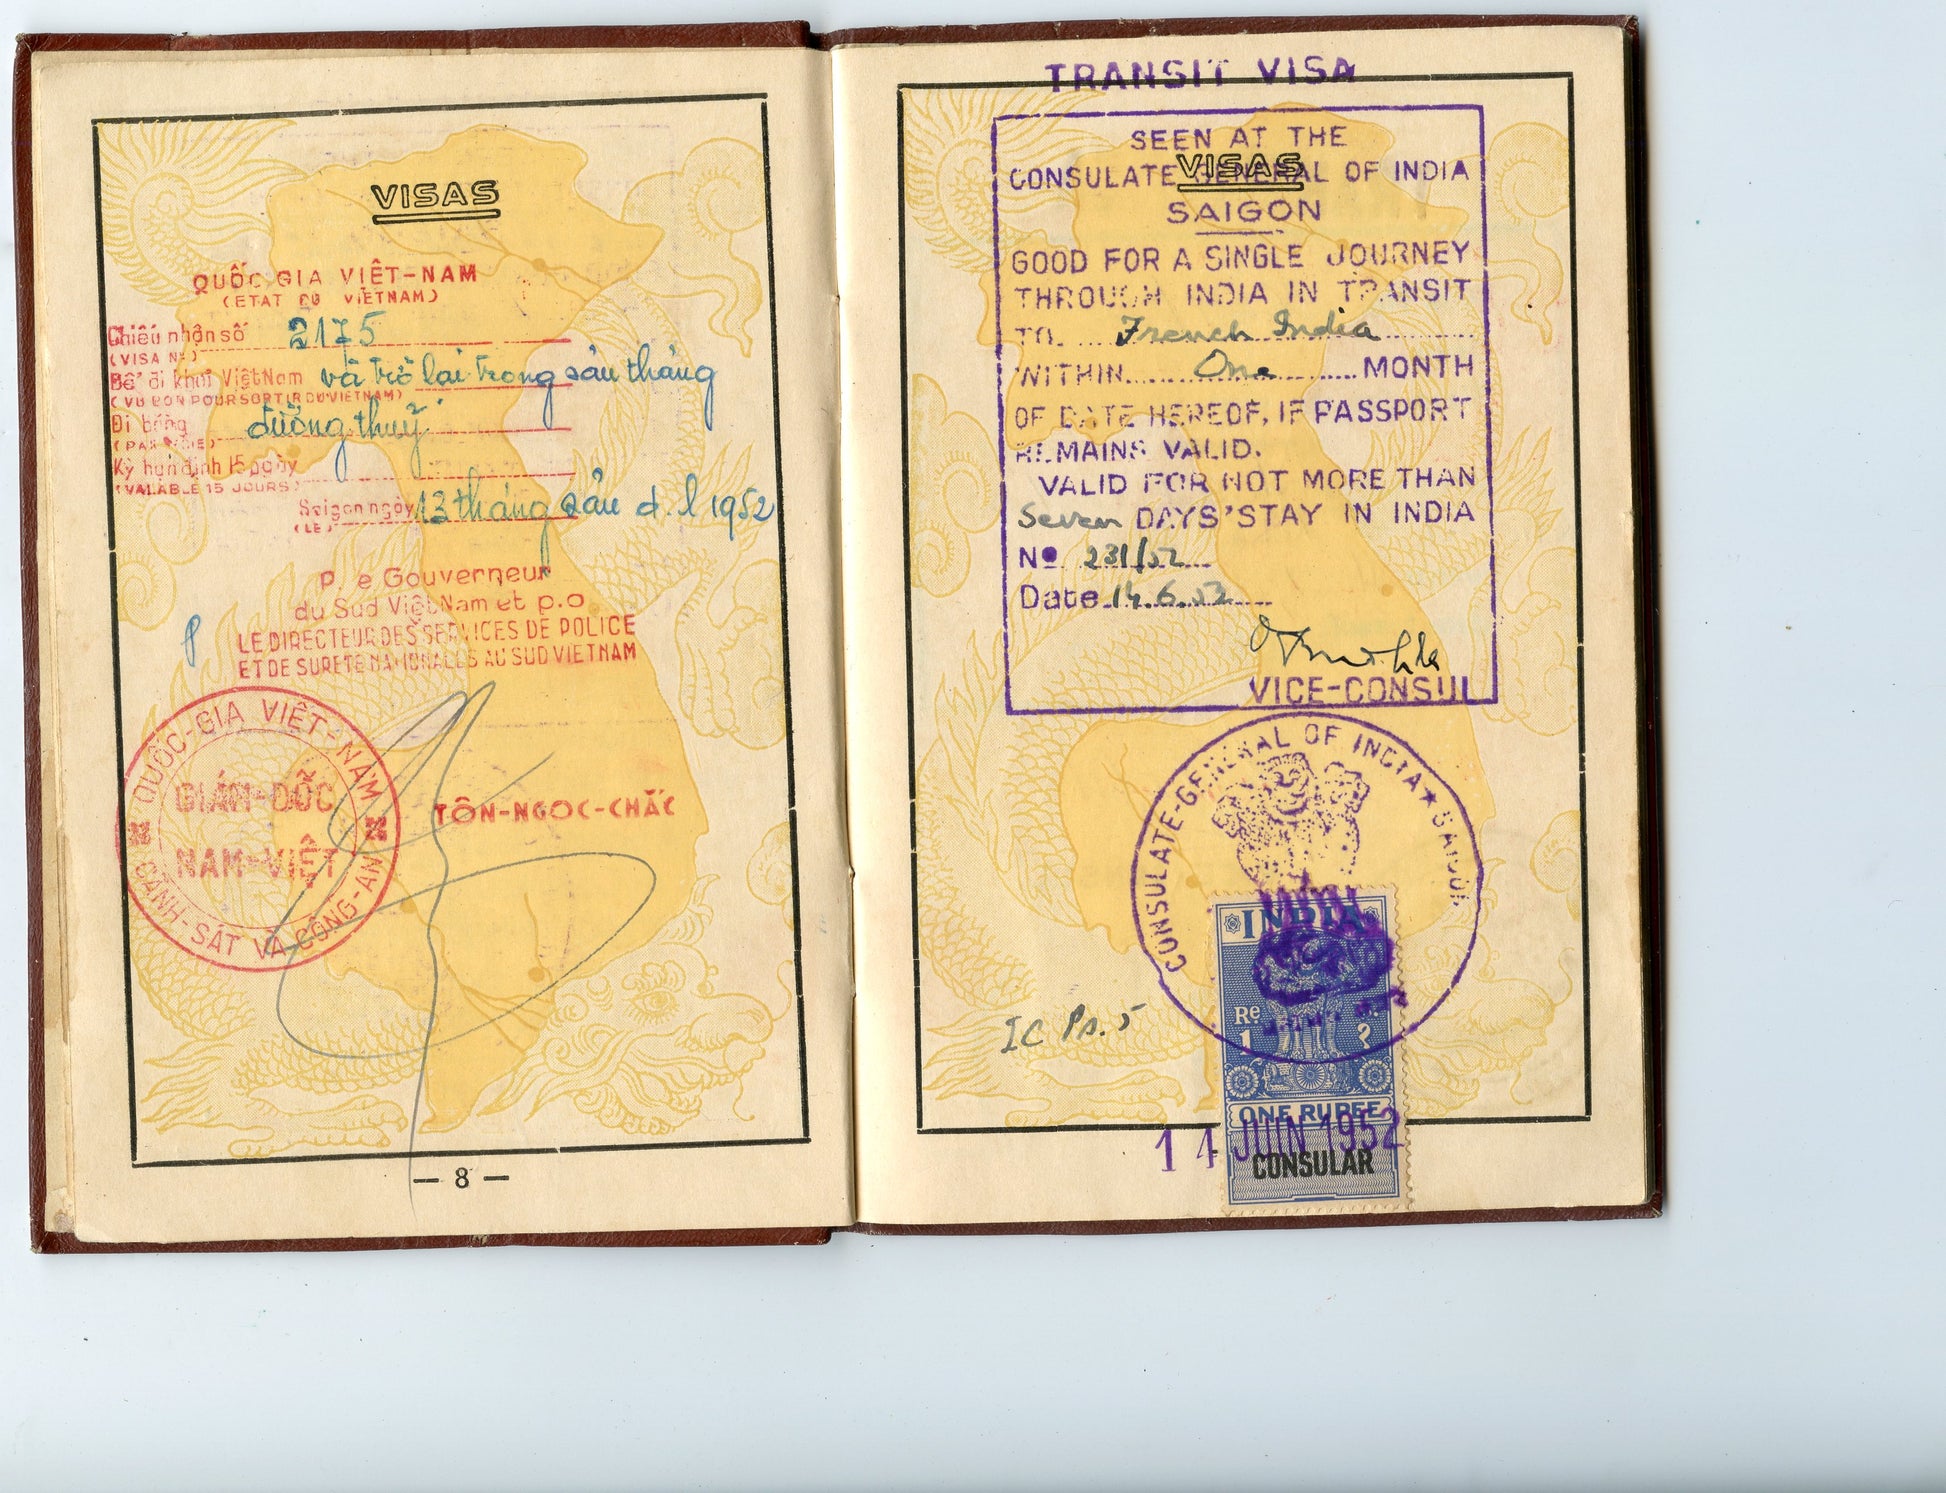 VISAS
QUỐC GIA VIỆT-NAM
(ETAT DU VIETNAM)
Chiếu nhận số 2175
(VISA Nº)
Để đi khỏi Việt Nam và trở lại trong sáu tháng
(VU BON POUR SORTIR DU VIETNAM)
Đi bằng đường thuỷ
(PAR VOIE)
Kỳ hạn định 15 ngày
(VALABLE 15 JOURS)
Saigon ngày 13 tháng sáu d.l 1952
(LE)
P. le Gouverneur
du Sud Việt Nam et p.o
LE DIRECTEUR DES SERVICES DE POLICE
ET DE SURETE NATIONALES AU SUD VIETNAM
QUỐC-GIA VIỆT-NAM
GIÁM-ĐỐC
NAM-VIỆT
CẢNH-SÁT VÀ CÔNG-AN
TÔN-NGOC-CHẮC
— 8 —
TRANSIT VISA
SEEN AT THE
VISAS
CONSULATE GENERAL OF INDIA
SAIGON
GOOD FOR A SINGLE JOURNEY
THROUGH INDIA IN TRANSIT
TO French India
WITHIN One MONTH
OF DATE HEREOF, IF PASSPORT
REMAINS VALID.
VALID FOR NOT MORE THAN
Seven DAYS' STAY IN INDIA
Nº 231/52
Date 14.6.52
VICE-CONSUL
CONSULATE-GENERAL OF INDIA ★ SAIGON
INDIA
IC Ps. 5
Re 1
रु. १
ONE RUPEE
14 JUIN 1952
CONSULAR